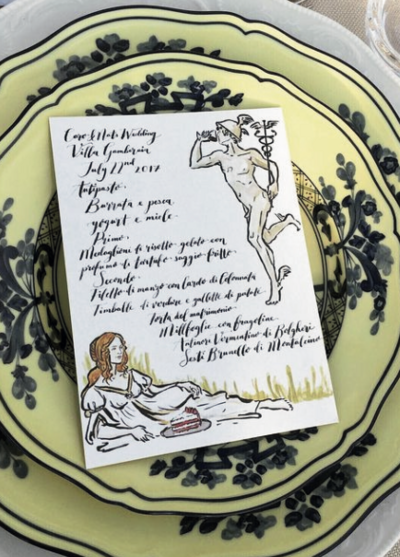 Caro & Nate Wedding
Villa Gamberaia
July 22nd 2017
Antipasto.
Burrata e pesca
yogurt e miele.
Primo.
Medaglione di risotto gelato con
profumo di tartufo saggio fritto
Secondo.
Filetto di manzo con lardo di Colonnata
Timballe di verdure e gallette di patate
Torta del matrimonio
Millfoglie con fragoline.
Antinori Vermentino di Bolgheri
Sesti Brunello di Montalcino